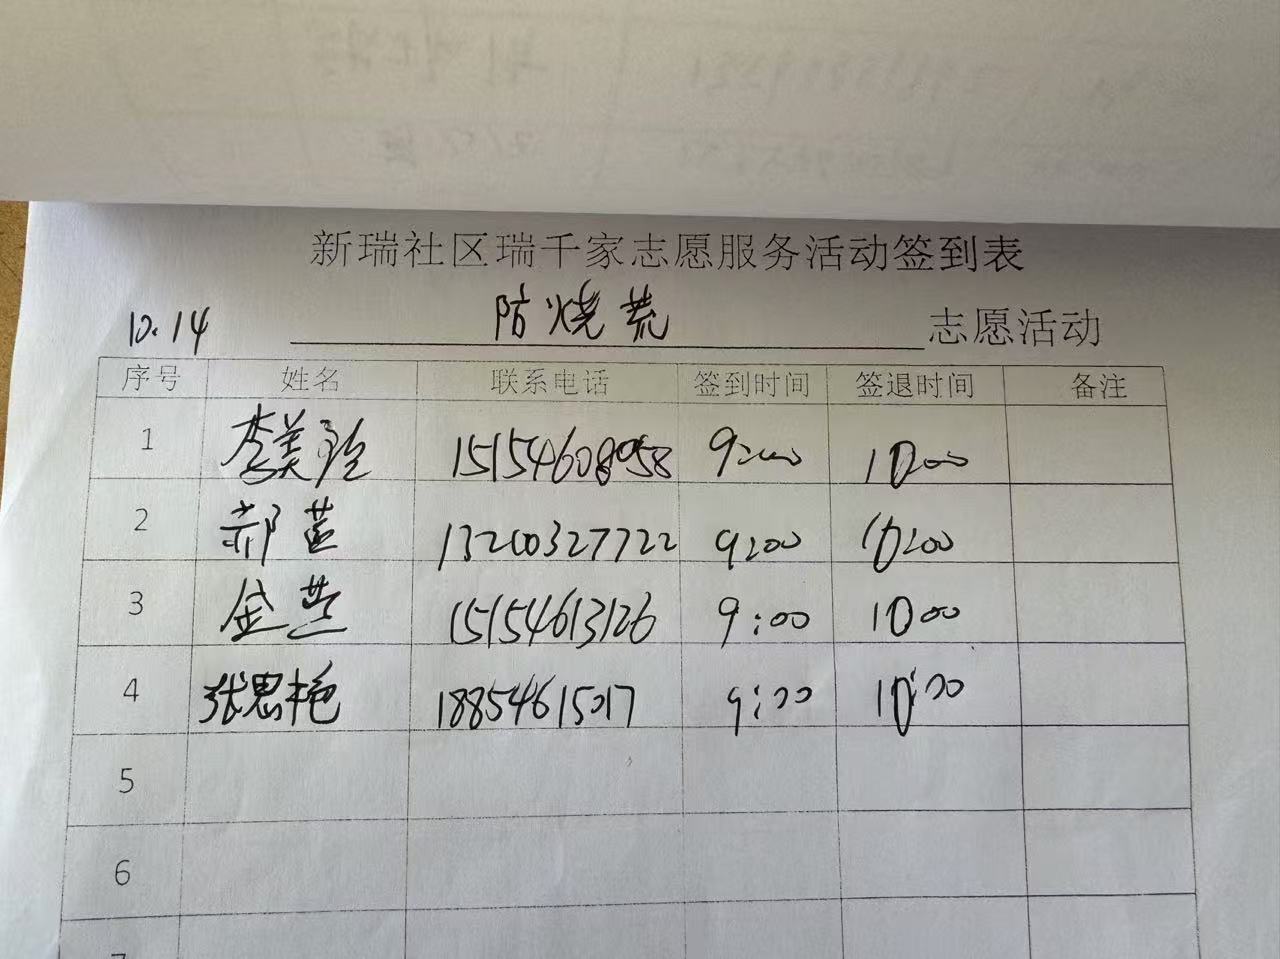 新瑞社区瑞千家志愿服务活动签到表
10.14 防烧荒 志愿活动
序号 姓名 联系电话 签到时间 签退时间 备注
1 李美玲 15154608958 9:00 10:00
2 郝蓝 13280327722 9:00 10:00
3 金燕 15154613126 9:00 10:00
4 张思艳 18854615017 9:00 10:00
5
6
7